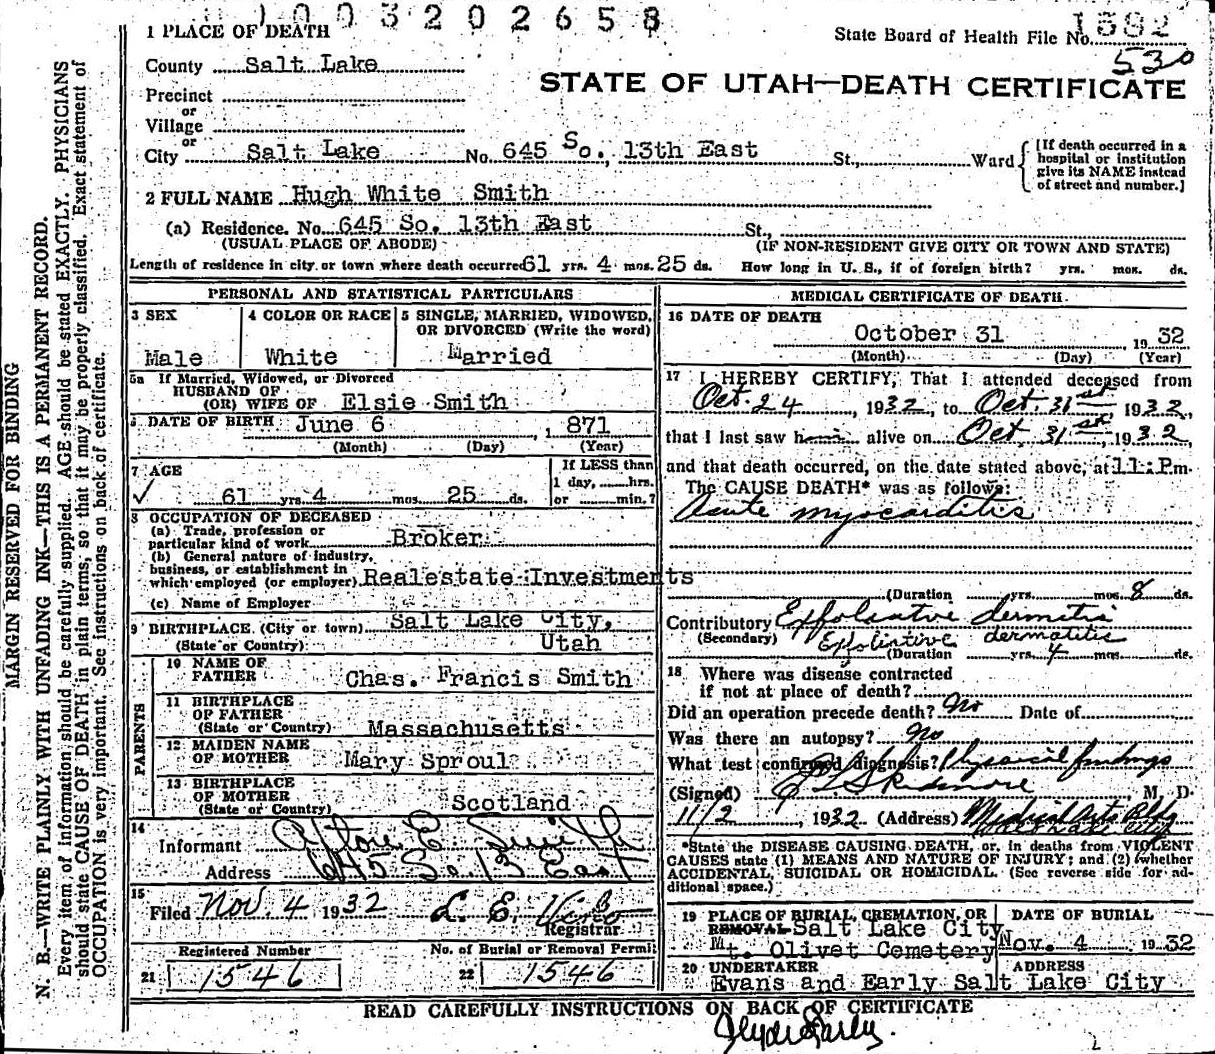 1003202658
1 PLACE OF DEATH
State Board of Health File No. 1592
530
County Salt Lake
STATE OF UTAH—DEATH CERTIFICATE
Precinct
or
Village
or
City Salt Lake No. 645 So. 13th East St., Ward
[If death occurred in a hospital or institution give its NAME instead of street and number.]
2 FULL NAME Hugh White Smith
(a) Residence. No. 645 So. 13th East St.,
(USUAL PLACE OF ABODE) (IF NON-RESIDENT GIVE CITY OR TOWN AND STATE)
Length of residence in city or town where death occurred 61 yrs. 4 mos. 25 ds. How long in U. S., if of foreign birth? yrs. mos. ds.
PERSONAL AND STATISTICAL PARTICULARS
3 SEX
Male
4 COLOR OR RACE
White
5 SINGLE, MARRIED, WIDOWED, OR DIVORCED (Write the word)
Married
5a If Married, Widowed, or Divorced
HUSBAND OF
(OR) WIFE OF Elsie Smith
6 DATE OF BIRTH June 6, 1871
(Month) (Day) (Year)
7 AGE
✓ 61 yrs. 4 mos. 25 ds.
If LESS than
1 day, hrs.
or min.?
8 OCCUPATION OF DECEASED
(a) Trade, profession or
particular kind of work Broker
(b) General nature of industry,
business, or establishment in
which employed (or employer) Realestate Investments
(c) Name of Employer
9 BIRTHPLACE (City or town) Salt Lake City,
(State or Country) Utah
PARENTS
10 NAME OF
FATHER Chas. Francis Smith
11 BIRTHPLACE
OF FATHER
(State or Country) Massachusetts
12 MAIDEN NAME
OF MOTHER Mary Sproul
13 BIRTHPLACE
OF MOTHER
(State or Country) Scotland
14
Informant Afton E. Smith
Address 645 So. 13 East
15
Filed Nov. 4 1932
Registrar
Registered Number
21 1546
No. of Burial or Removal Permit
22 1546
MEDICAL CERTIFICATE OF DEATH
16 DATE OF DEATH
October 31 1932
(Month) (Day) (Year)
17 I HEREBY CERTIFY, That I attended deceased from
Oct. 24, 1932, to Oct. 31st, 1932,
that I last saw him alive on Oct. 31st, 1932,
and that death occurred, on the date stated above, at 11:P.m.
The CAUSE DEATH* was as follows:
Acute myocarditis
(Duration yrs. mos. 8 ds.
Contributory Exfoliative dermitis
(Secondary) Exfoliative dermatitis
(Duration yrs. 4 mos. ds.
18 Where was disease contracted
if not at place of death?
Did an operation precede death? No Date of
Was there an autopsy? No
What test confirmed diagnosis? Physical findings
(Signed) Skidmore, M. D.
11/2, 1932 (Address) Medical Arts Bldg
Salt Lake City
*State the DISEASE CAUSING DEATH, or, in deaths from VIOLENT
CAUSES state (1) MEANS AND NATURE OF INJURY; and (2) whether
ACCIDENTAL, SUICIDAL OR HOMICIDAL. (See reverse side for ad-
ditional space.)
19 PLACE OF BURIAL, CREMATION, OR
REMOVAL Salt Lake City
Mt. Olivet Cemetery
DATE OF BURIAL
Nov. 4 1932
20 UNDERTAKER ADDRESS
Evans and Early Salt Lake City
READ CAREFULLY INSTRUCTIONS ON BACK OF CERTIFICATE
Clyde Early
MARGIN RESERVED FOR BINDING
N. B.—WRITE PLAINLY WITH UNFADING INK—THIS IS A PERMANENT RECORD.
Every item of information should be carefully supplied. AGE should be stated EXACTLY. PHYSICIANS
should state CAUSE OF DEATH in plain terms, so that it may be properly classified. Exact statement of
OCCUPATION is very important. See instructions on back of certificate.